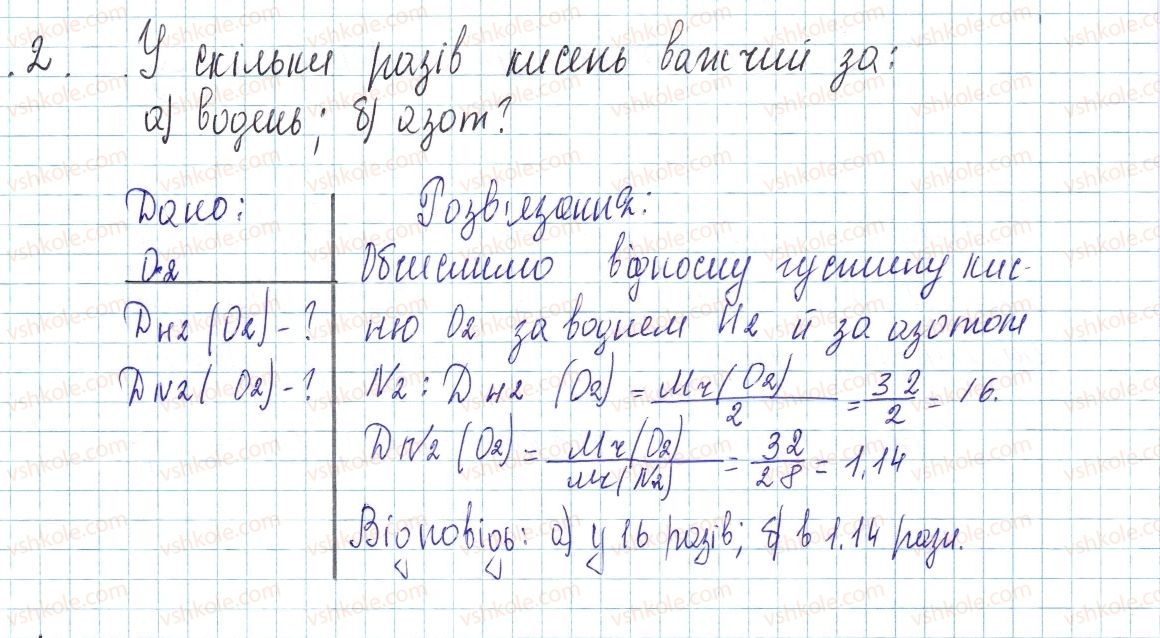 2. У скільки разів кисень важчий за:
а) водень; б) азот?
Дано:
O2
DH2 (O2) - ?
DN2 (O2) - ?
Розв'язання:
Обчислимо відносну густину кис-
ню O2 за воднем H2 й за азотом
N2: DH2 (O2) = Mr(O2)/2 = 32/2 = 16.
DN2 (O2) = Mr(O2)/Mr(N2) = 32/28 = 1,14
Відповідь: а) у 16 разів; б) в 1,14 рази.
vshkole.com